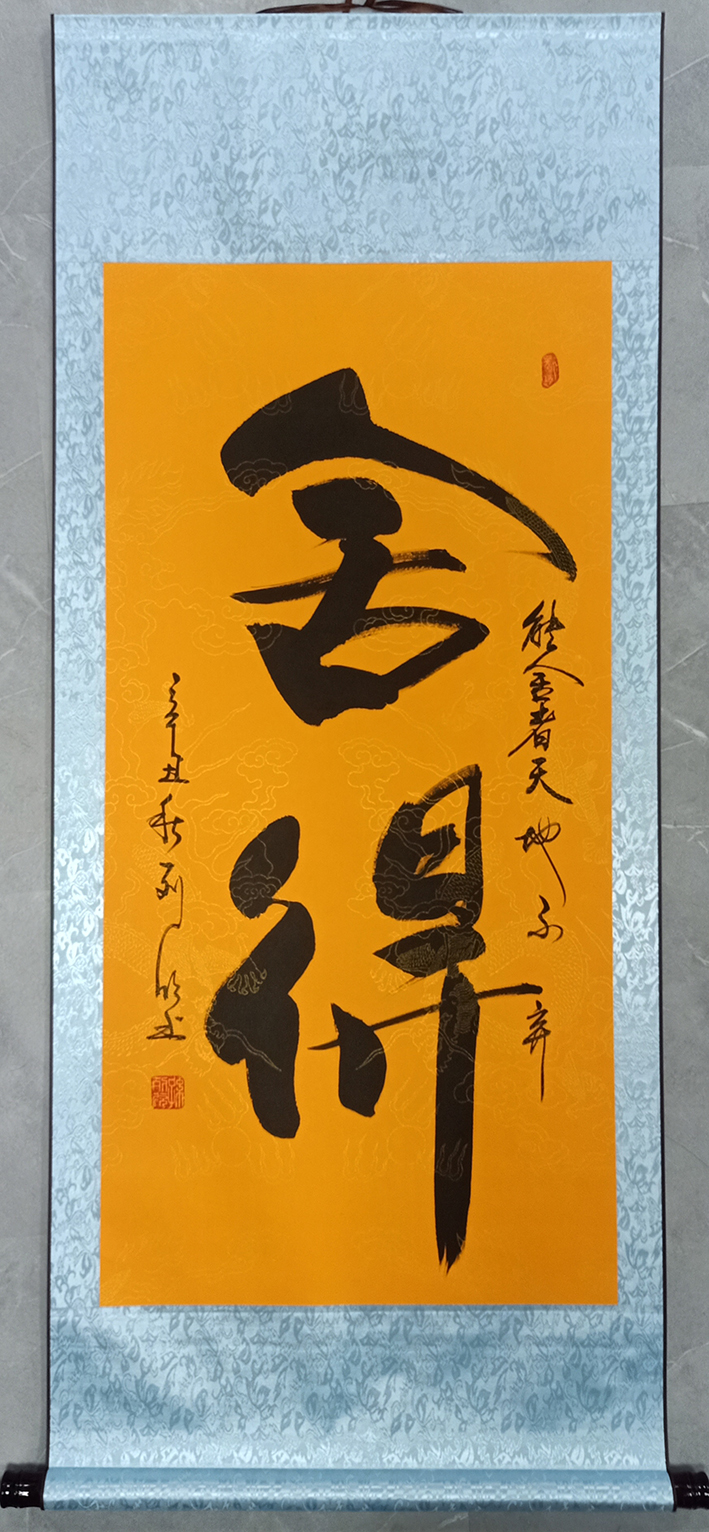 能舍者天地不弃
舍得
辛丑秋刘明书